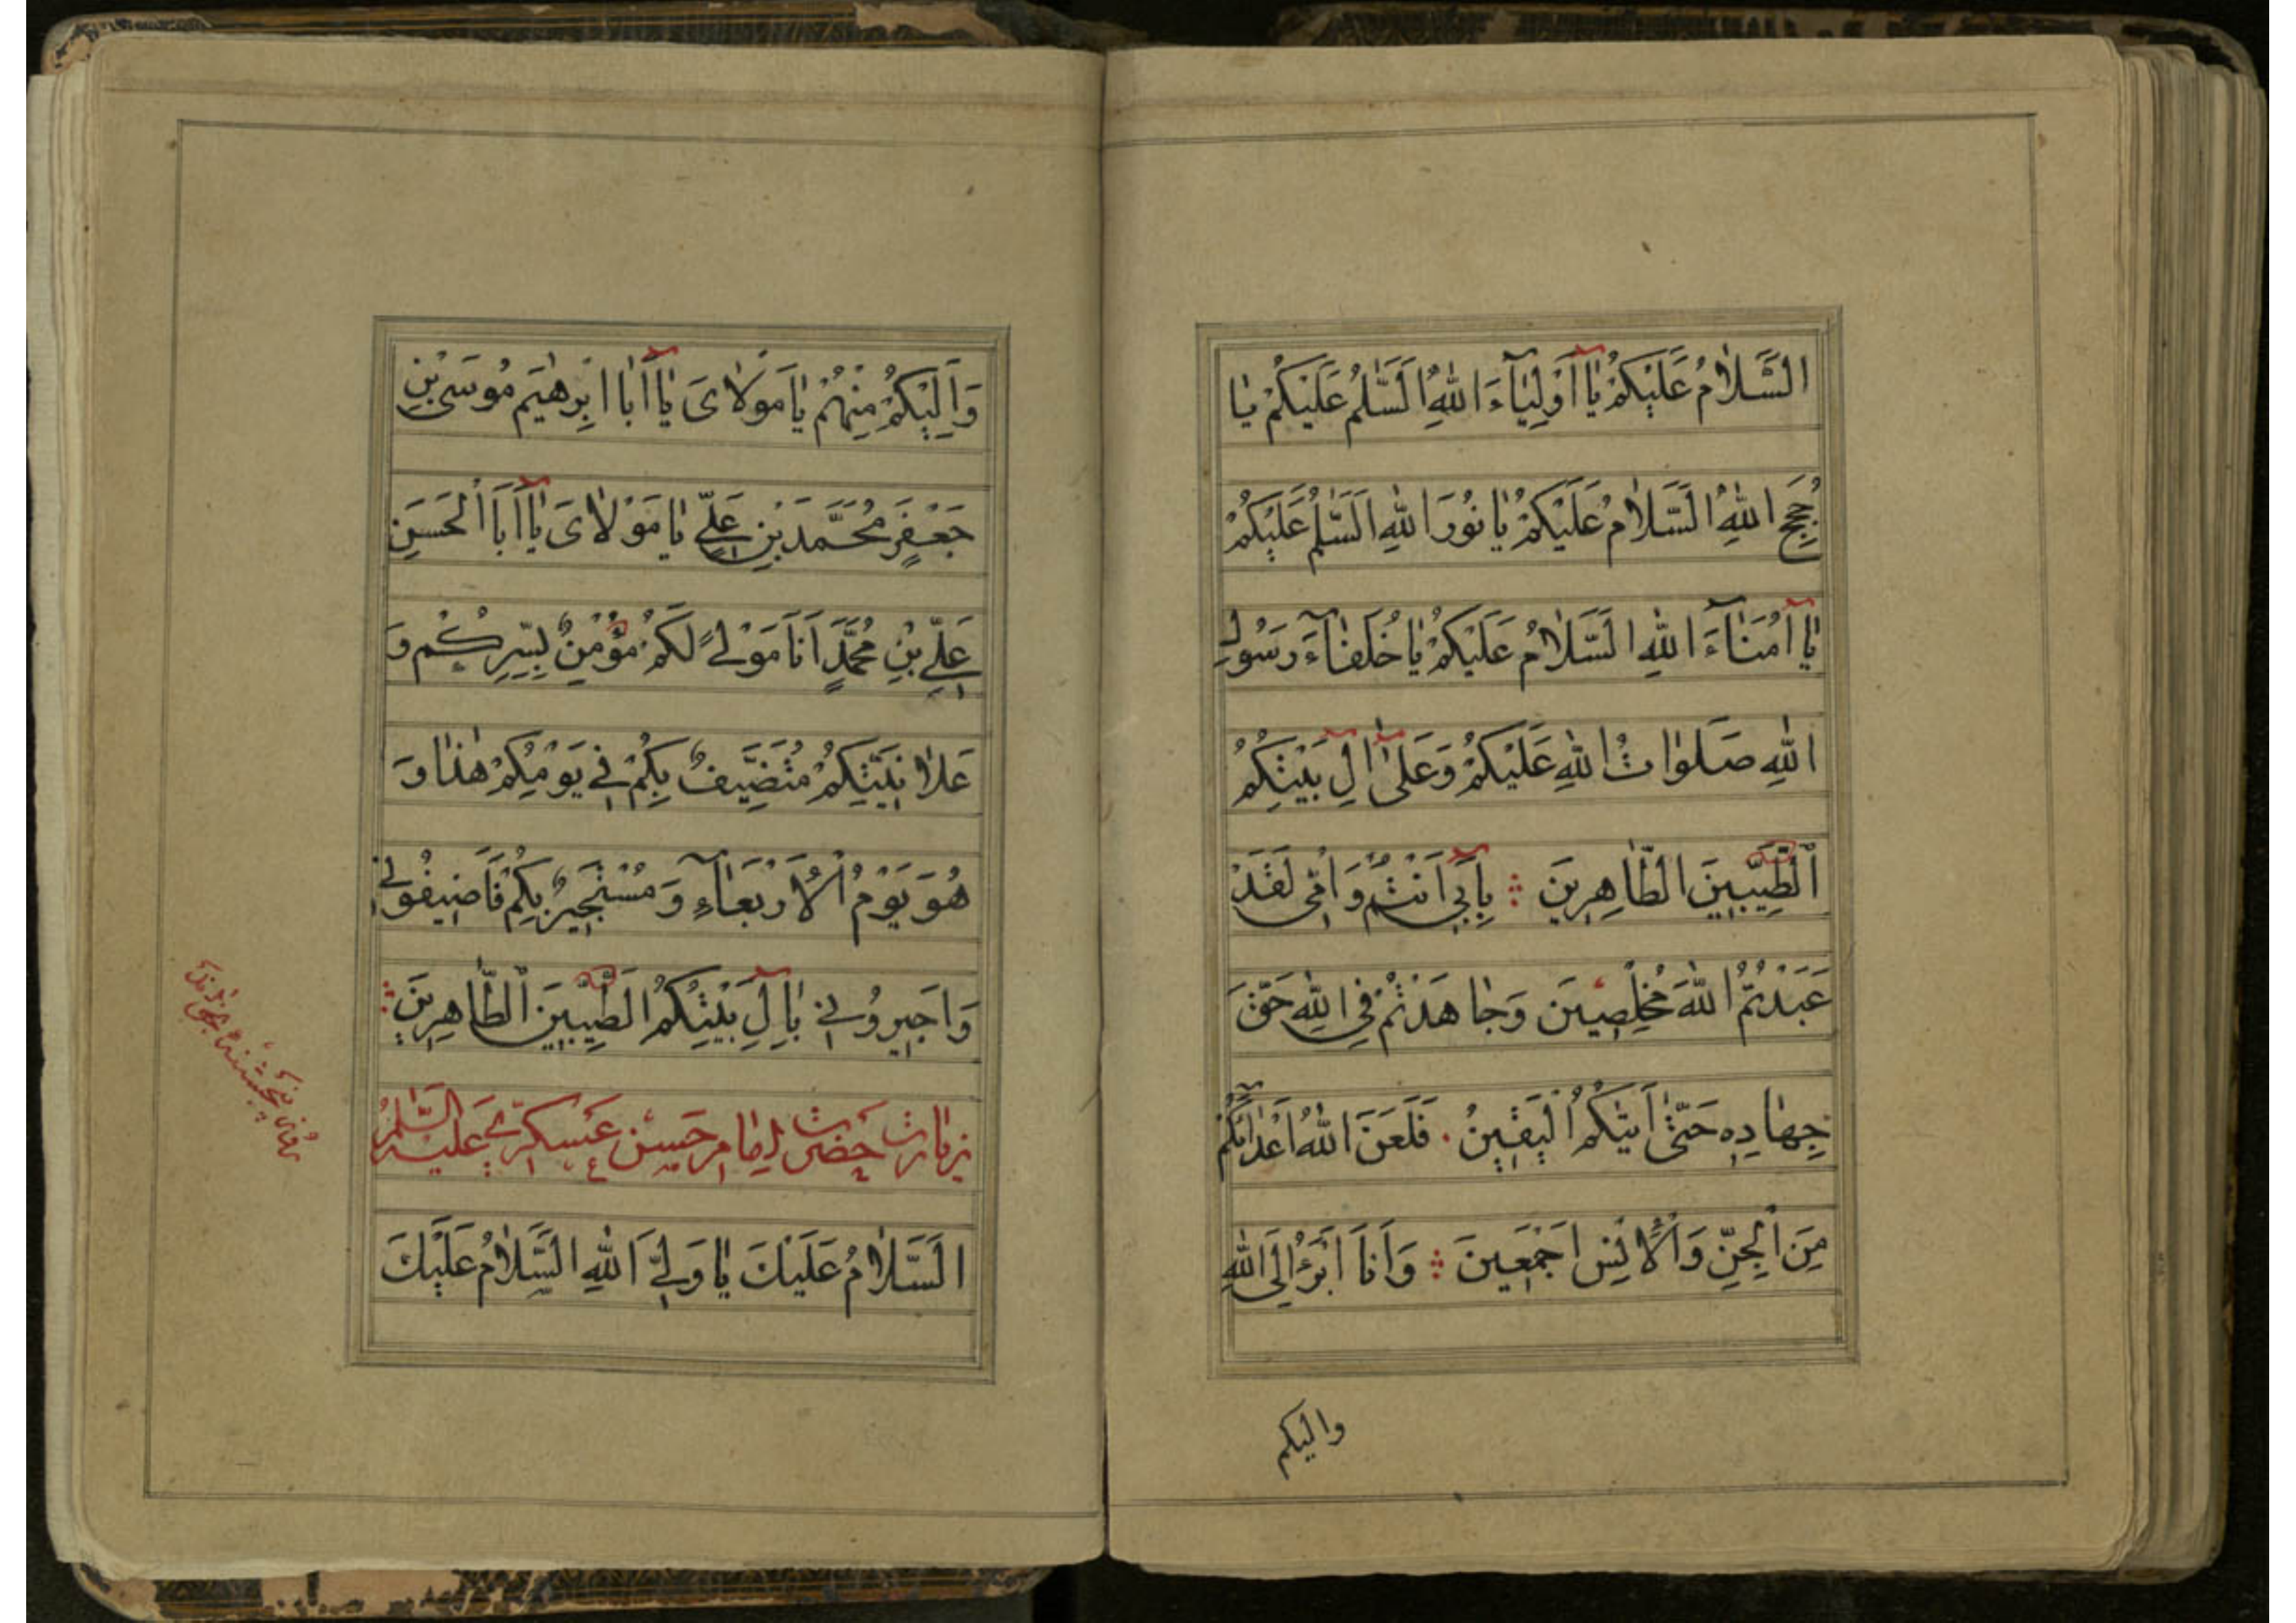 السَّلَامُ عَلَيْكُمْ يَا أَوْلِيَاءَ اللهِ اَلسَّلٰمُ عَلَيْكُمْ يَا
حُجَجَ اللهِ اَلسَّلَامُ عَلَيْكُمْ يَا نُورَ اللهِ اَلسَّلٰمُ عَلَيْكُمْ
يَا اُمَنَاءَ اللهِ اَلسَّلَامُ عَلَيْكُمْ يَا خُلَفَاءَ رَسُولِ
اللهِ صَلَوَاتُ اللهِ عَلَيْكُمْ وَعَلىٰ اٰلِ بَيْتِكُمُ
الطَّيِّبِينَ الطَّاهِرِينَ ؞ بِاَبِي اَنْتُمْ وَاُمِّى لَقَدْ
عَبَدْتُمُ اللهَ مُخْلِصِينَ وَجَاهَدْتُمْ فِي اللهِ حَقَّ
جِهَادِهِ حَتّٰى اَتٰيكُمُ الْيَقِينُ . فَلَعَنَ اللهُ اَعْدَائَكُمْ
مِنَ الْجِنِّ وَالْاِنْسِ اَجْمَعِينَ ؞ وَاَنَا اَبْرَءُ اِلَى اللهِ
واليكم
وَاِلَيْكُمْ مِنْهُمْ يَا مَوْلَاىَ يَا اَبَا اِبْرٰهِيمَ مُوسَى بْنِ
جَعْفَرٍ مُحَمَّدَ بْنِ عَلِيٍّ يَا مَوْلَاىَ يَا اَبَا الْحَسَنِ
عَلِيِّ بْنِ مُحَمَّدٍ اَنَا مَوْلىً لَكُمْ مُؤْمِنٌ بِسِرِّكُمْ وَ
عَلَانِيَتِكُمْ مُتَضَيِّفٌ بِكُمْ فِي يَوْمِكُمْ هٰذَا وَ
هُوَ يَوْمُ الْاَرْبَعَاءِ وَمُسْتَجِيرٌ بِكُمْ فَاَضِيفُونِي
وَاَجِيرُونِي بِاٰلِ بَيْتِكُمُ الطَّيِّبِينَ الطَّاهِرِينَ ؞
زيارت حضرت امام حسن عسكرى عليه السّلٰم
اَلسَّلَامُ عَلَيْكَ يَا وَلِيَّ اللهِ اَلسَّلَامُ عَلَيْكَ